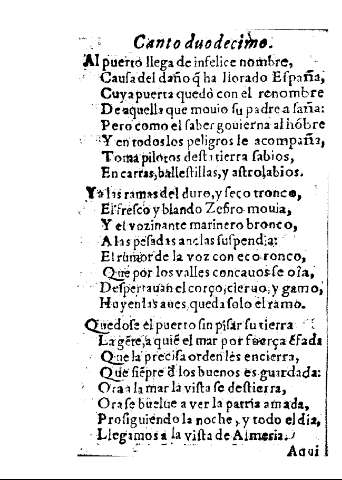 Canto duodecimo.
Al puerto llega de infelice nombre,
Causa del daño q̃ ha llorado España,
Cuya puerta quedò con el renombre
De aquella que mouio su padre a saña:
Pero como el saber gouierna al hõbre
Y en todos los peligros le acompaña,
Toma pilotos desta tierra sabios,
En cartas, ballestillas, y astrolabios.
Ya las ramas del duro, y seco tronco,
El fresco y blando Zefiro mouia,
Y el vozinante marinero bronco,
A las pesadas anclas suspendia:
El rumor de la voz con eco ronco,
Que por los valles concauos se oîa,
Despertauan el corço, cieruo, y gamo,
Huyen las aues, queda solo el ramo.
Quedose el puerto sin pisar su tierra
La gẽte, a quiẽ el mar por fuerça ẽfada
Que la precisa orden les encierra,
Que siẽpre d̃ los buenos es guardada:
Ora a la mar la vista se destierra,
Ora se buelue a ver la patria amada,
Prosiguiendo la noche, y todo el dia,
Llegamos a la vista de Almeria.
Aqui